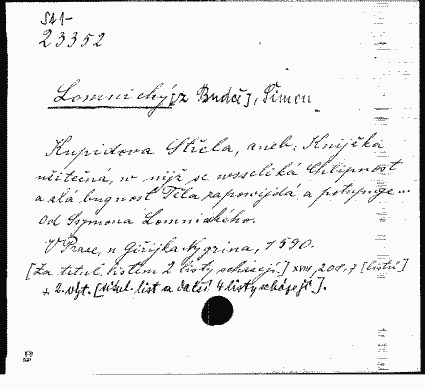 54 I-
23352
Lomnický [z Budče], Šimon
Kupidova Střela, aneb: Knížka
užitečná, w níž se wsseliká Chlipnost
a zlá bugnost Těla zapowijdá a potupuge...
Od Ssymona Lomnického.
V Praze, u Giřijka Nygrina, 1590.
[Za titul. listem 2 listy scházejí] XVIII, 201, 7 [listů]
+ 2. výt. [titul. list a další 4 listy scházejí].